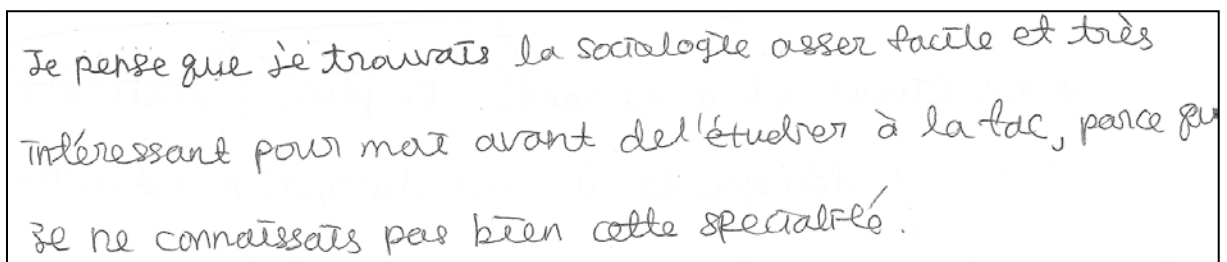 Je pense que je trouvais la sociologie asser facile et très
intéressant pour moi avant de l'étudier à la fac, parce qu
Je ne connaissais pas bien cette specialité.